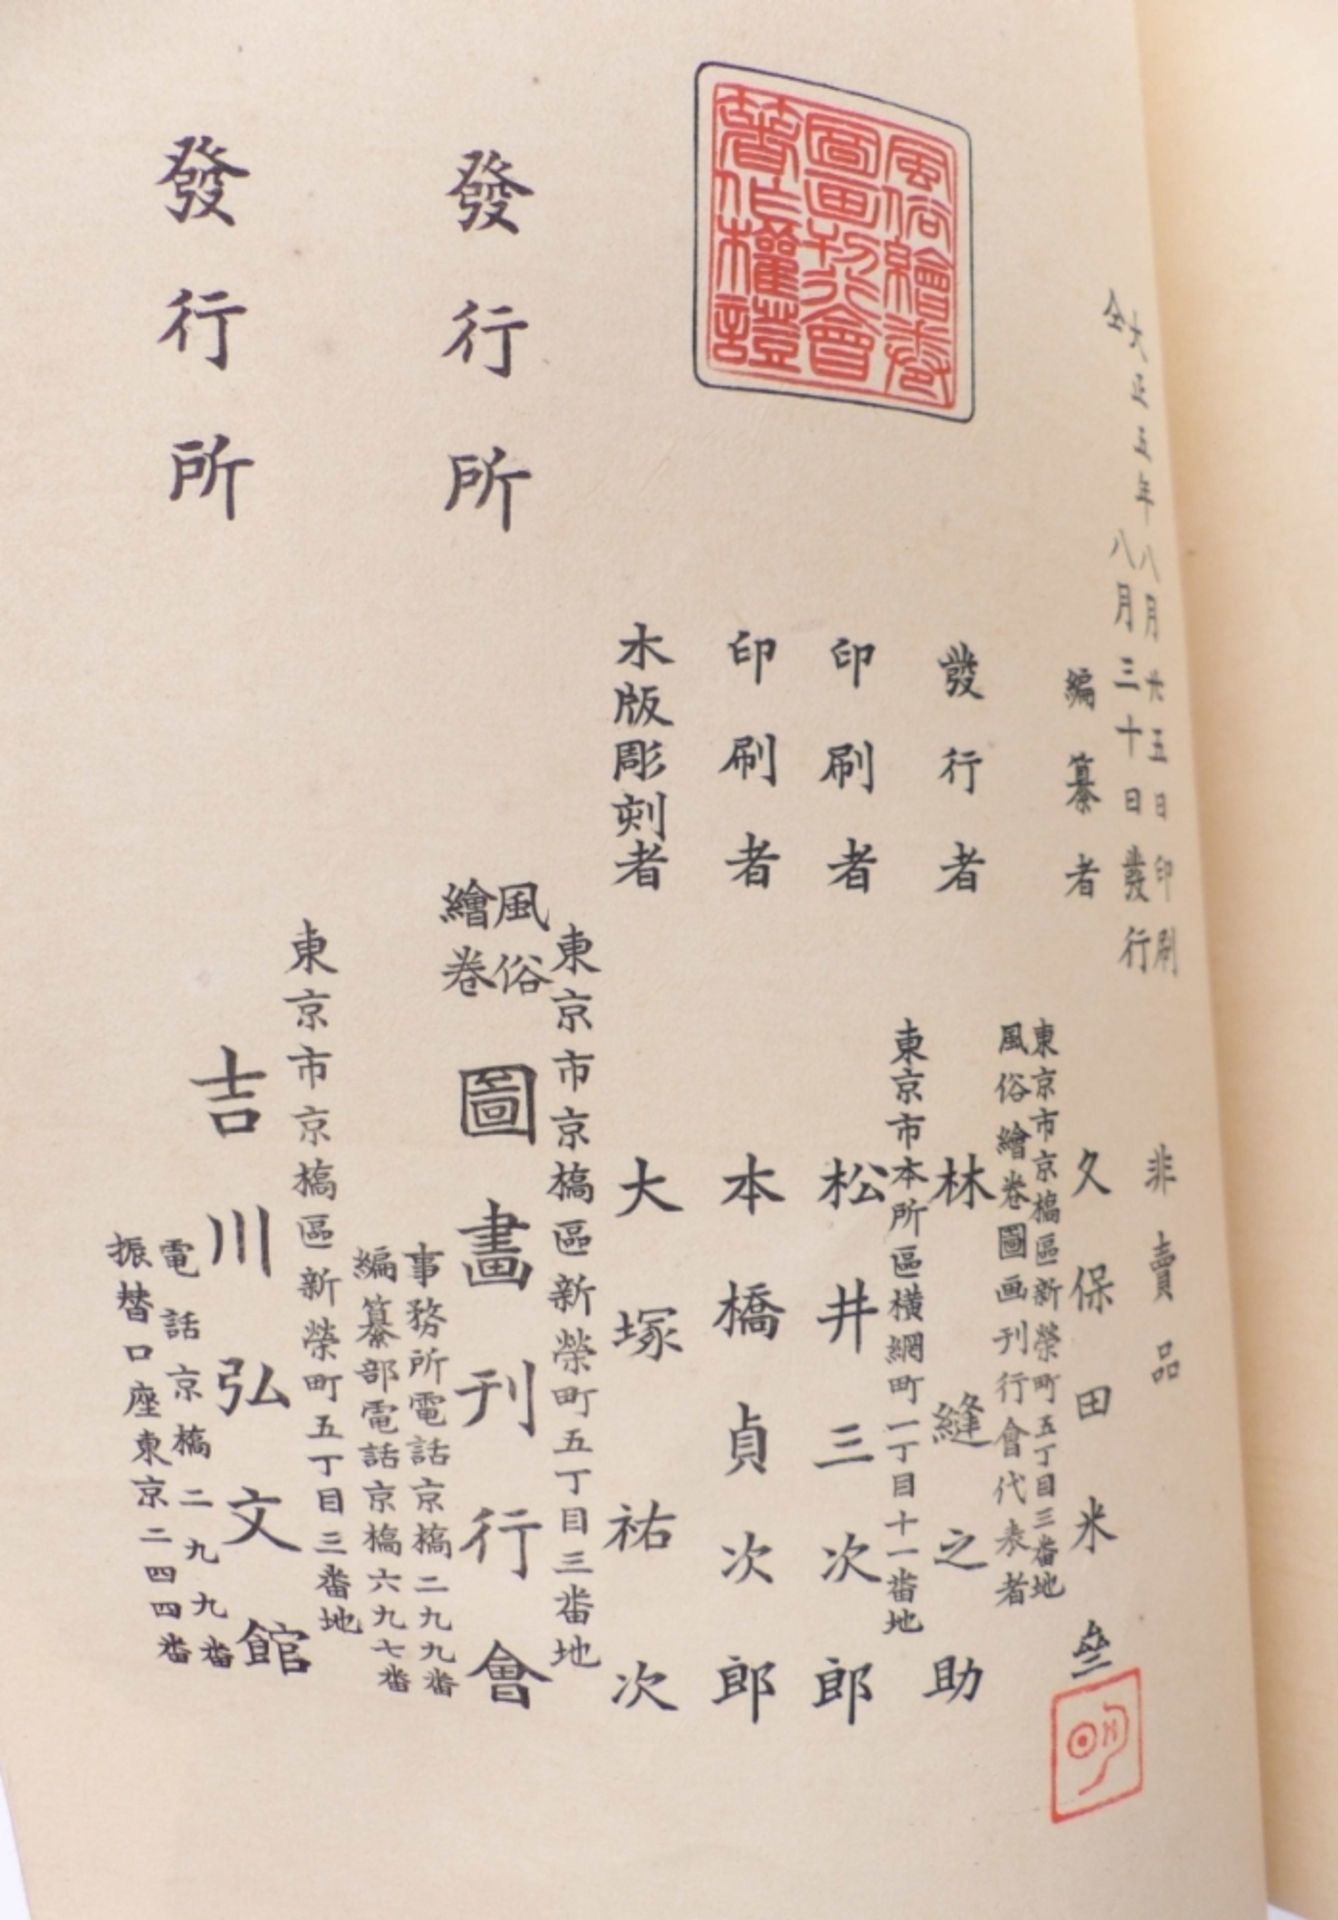 大正五年八月廿五日印刷
仝　　　八月三十日發行
非賣品
編纂者
久保田米
東京市京橋區新榮町五丁目三番地
風俗繪卷圖画刊行會代表者
發行者
林縫之助
東京市本所區横網町一丁目十一番地
印刷者
松井三次郎
印刷者
本橋貞次郎
木版彫刻者
大塚祐次
風俗繪卷圖畫刊行會著作權證
東京市京橋區新榮町五丁目三番地
發行所
風俗繪卷圖畫刊行會
事務所電話京橋二九九番
編纂部電話京橋六九七番
東京市京橋區新榮町五丁目三番地
發行所
吉川弘文館
電話京橋二九九番
振替口座東京二四四番